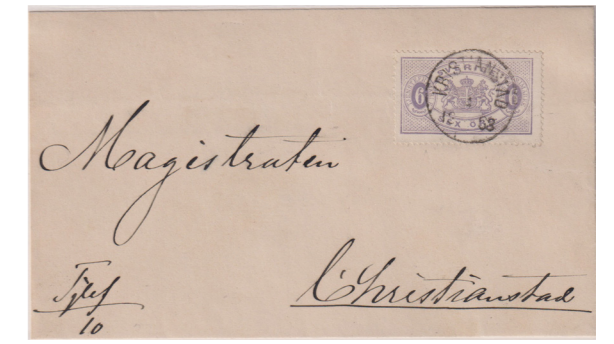 6
KRISTIANSTAD
Magistraten
Christianstad
10